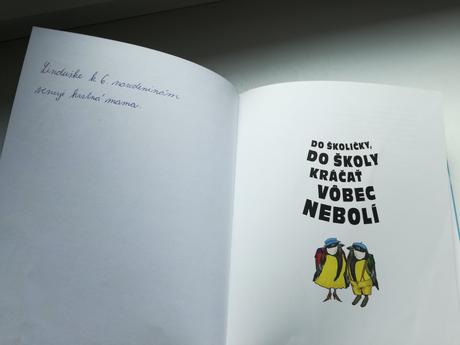 Linduške k 6. narodeninám
venuje krstná mama.
DO ŠKOLIČKY,
DO ŠKOLY
KRÁČAŤ
VÔBEC
NEBOLÍ